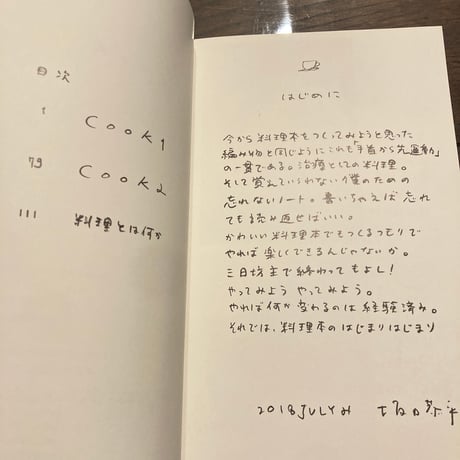 目次
1 Cook1
79 Cook2
111 料理とは何か
はじめに
今から料理本をつくってみようと思った
編み物と同じようにこれも「手首から先運動」
の一貫である。治療としての料理。
そして覚えていられない僕のための
忘れないノート。書いちゃえば忘れ
ても読み返せばいい。
かわいい料理本でもつくるつもりで
やれば楽しくできるんじゃないか。
三日坊主で終わってもよし!
やってみようやってみよう。
やれば何か変わるのは経験済み。
それでは、料理本のはじまりはじまり
2018 JULY 坂口恭平